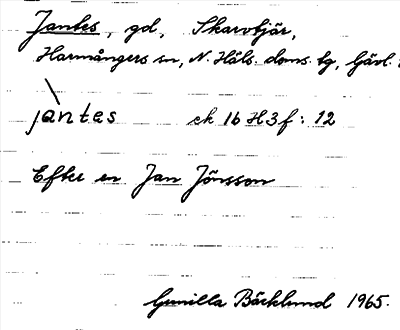 Jantes, gd, Skarvtjär,
Harmångers sn, N. Häls. doms. tg, Gävl.
jàntes ek 16 H3f : 12
Efter en Jan Jönsson
Gunilla Bäcklund 1965.